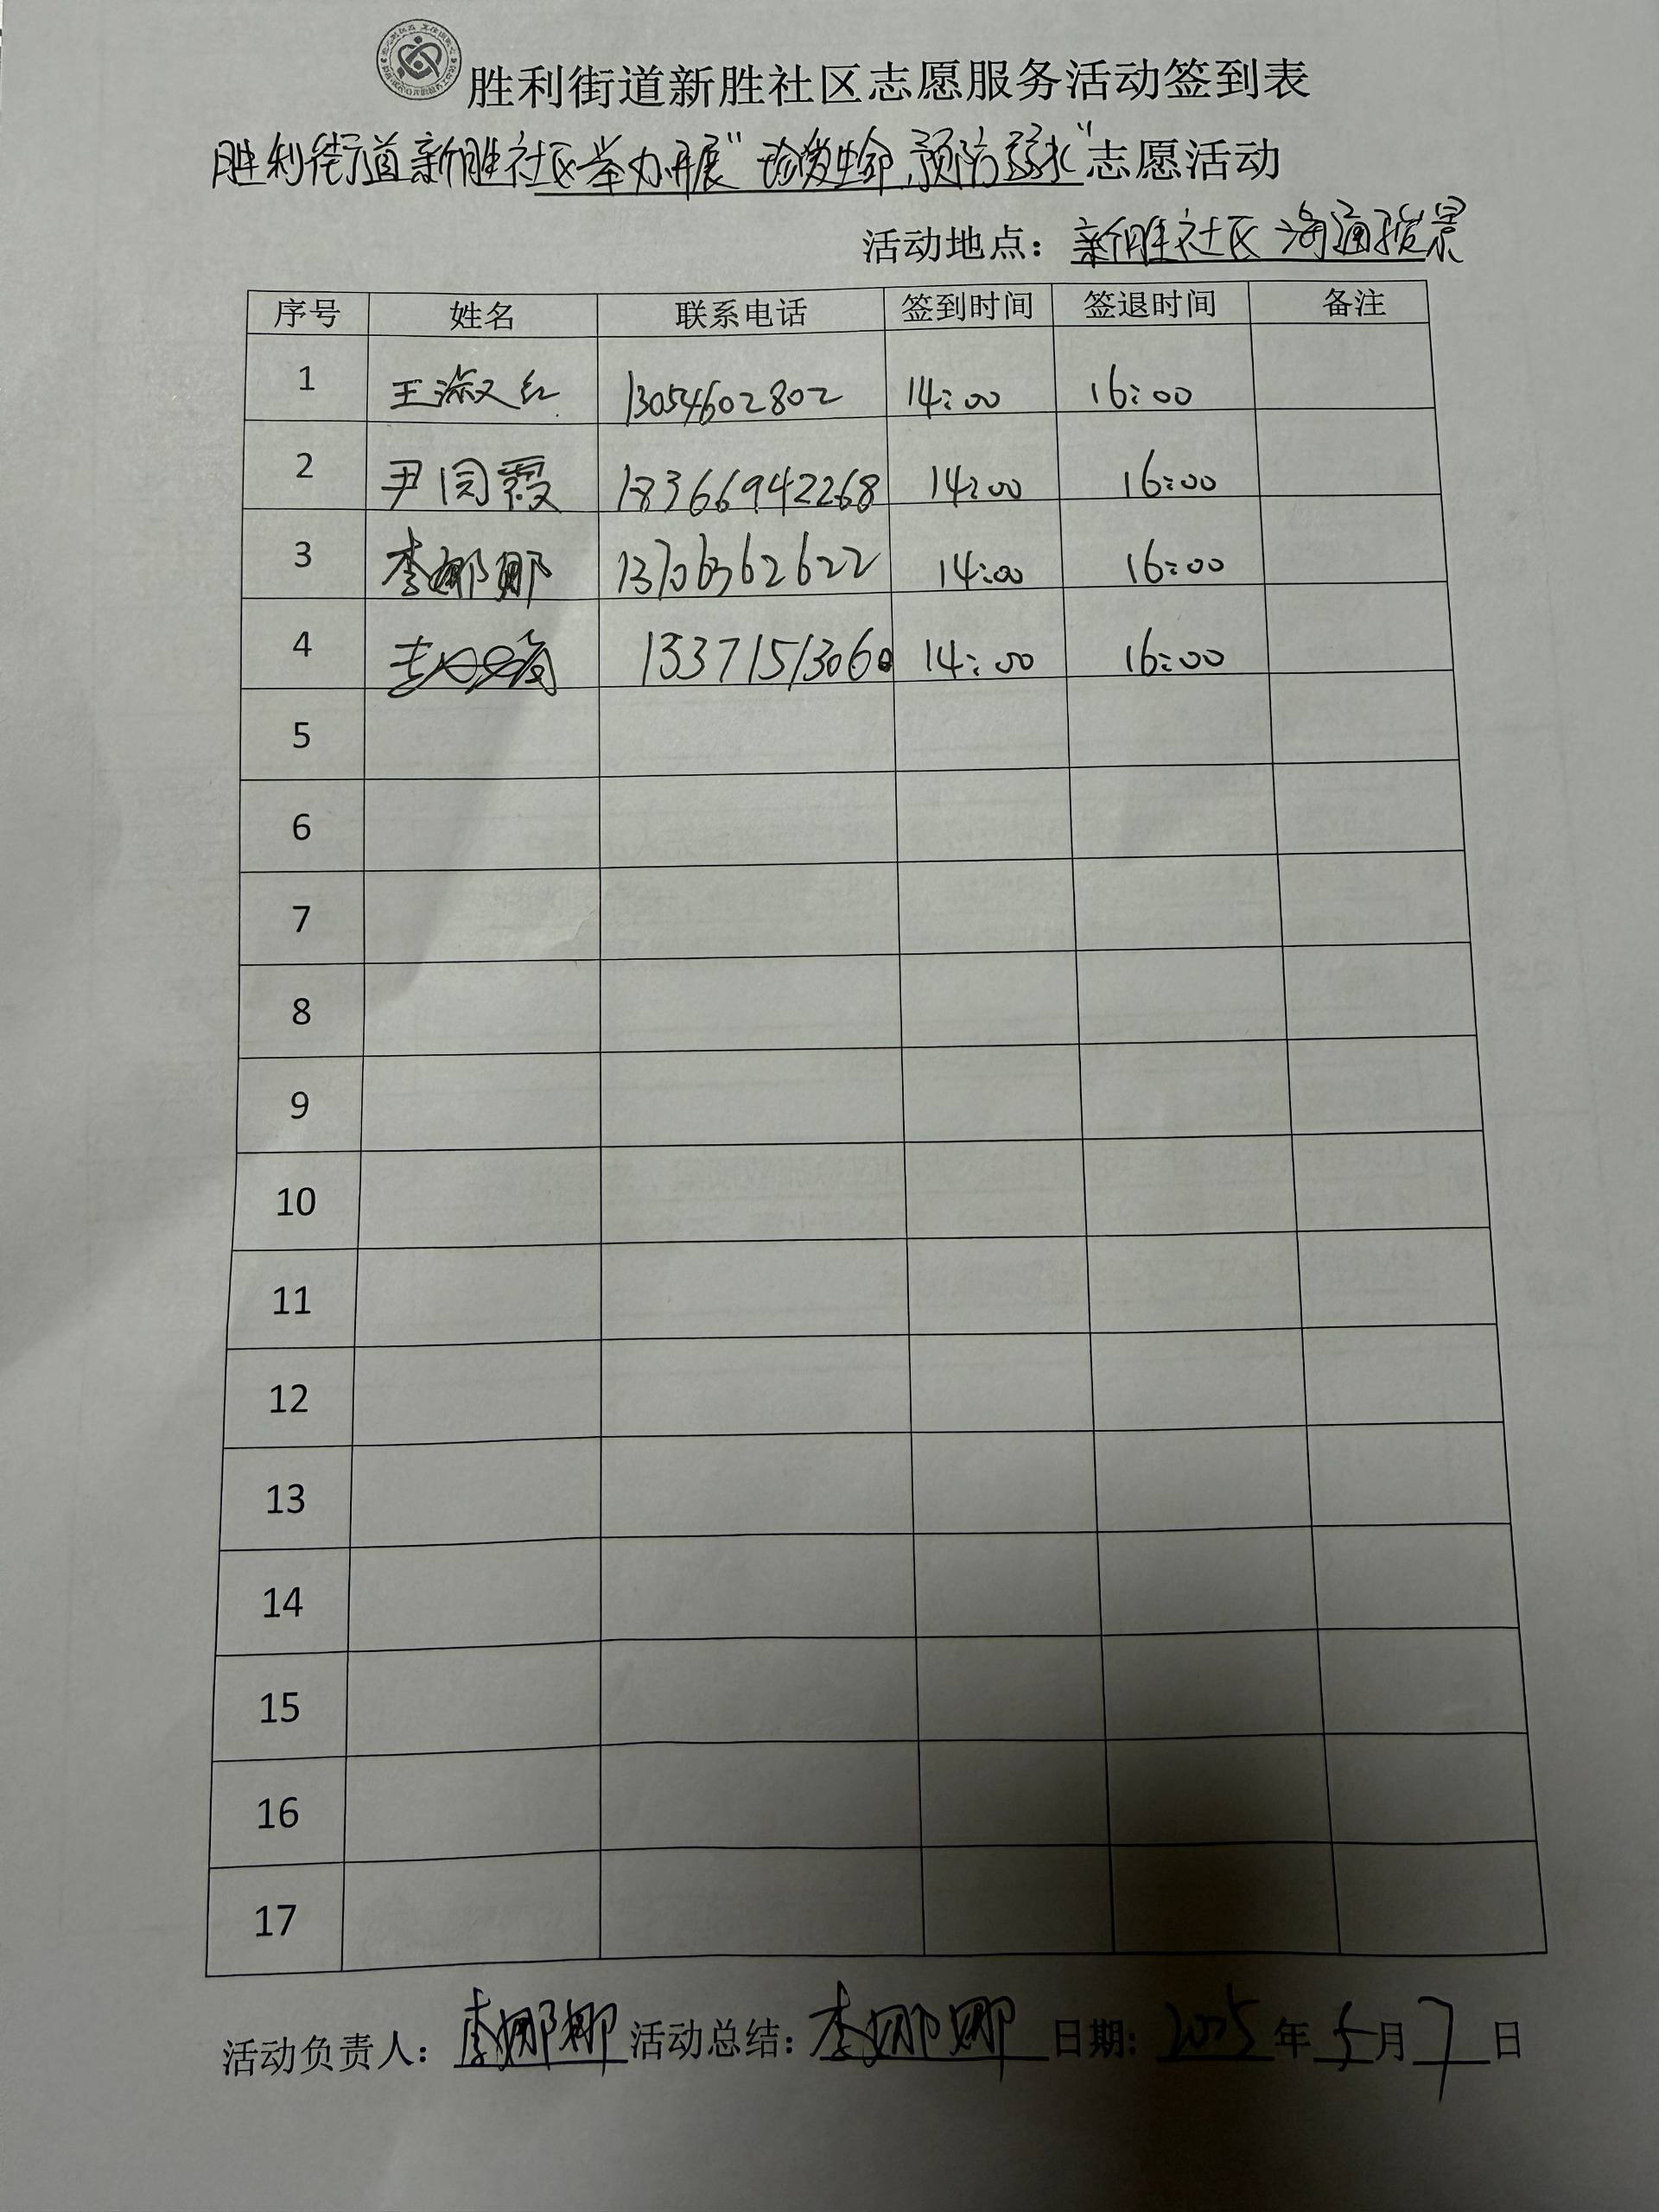 胜利街道新胜社区志愿服务活动签到表
胜利街道新胜社区举办开展“珍爱生命,预防溺水”志愿活动
活动地点：新胜社区海通骏景
序号 姓名 联系电话 签到时间 签退时间 备注
1 王淑红 13054602802 14:00 16:00
2 尹同霞 18366942268 14:00 16:00
3 李娜娜 13706362622 14:00 16:00
4 13371513060 14:00 16:00
5
6
7
8
9
10
11
12
13
14
15
16
17
活动负责人：李娜娜 活动总结：李娜娜 日期：2025年5月7日